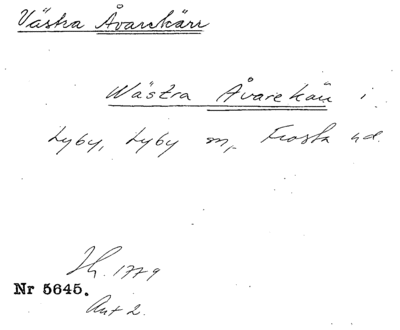 Västra Åvarekärr
Wästra Åvarekärr i
Lyby, Lyby m, Frosta hd.
Jh. 1779
Nr 5645.
Akt 2.